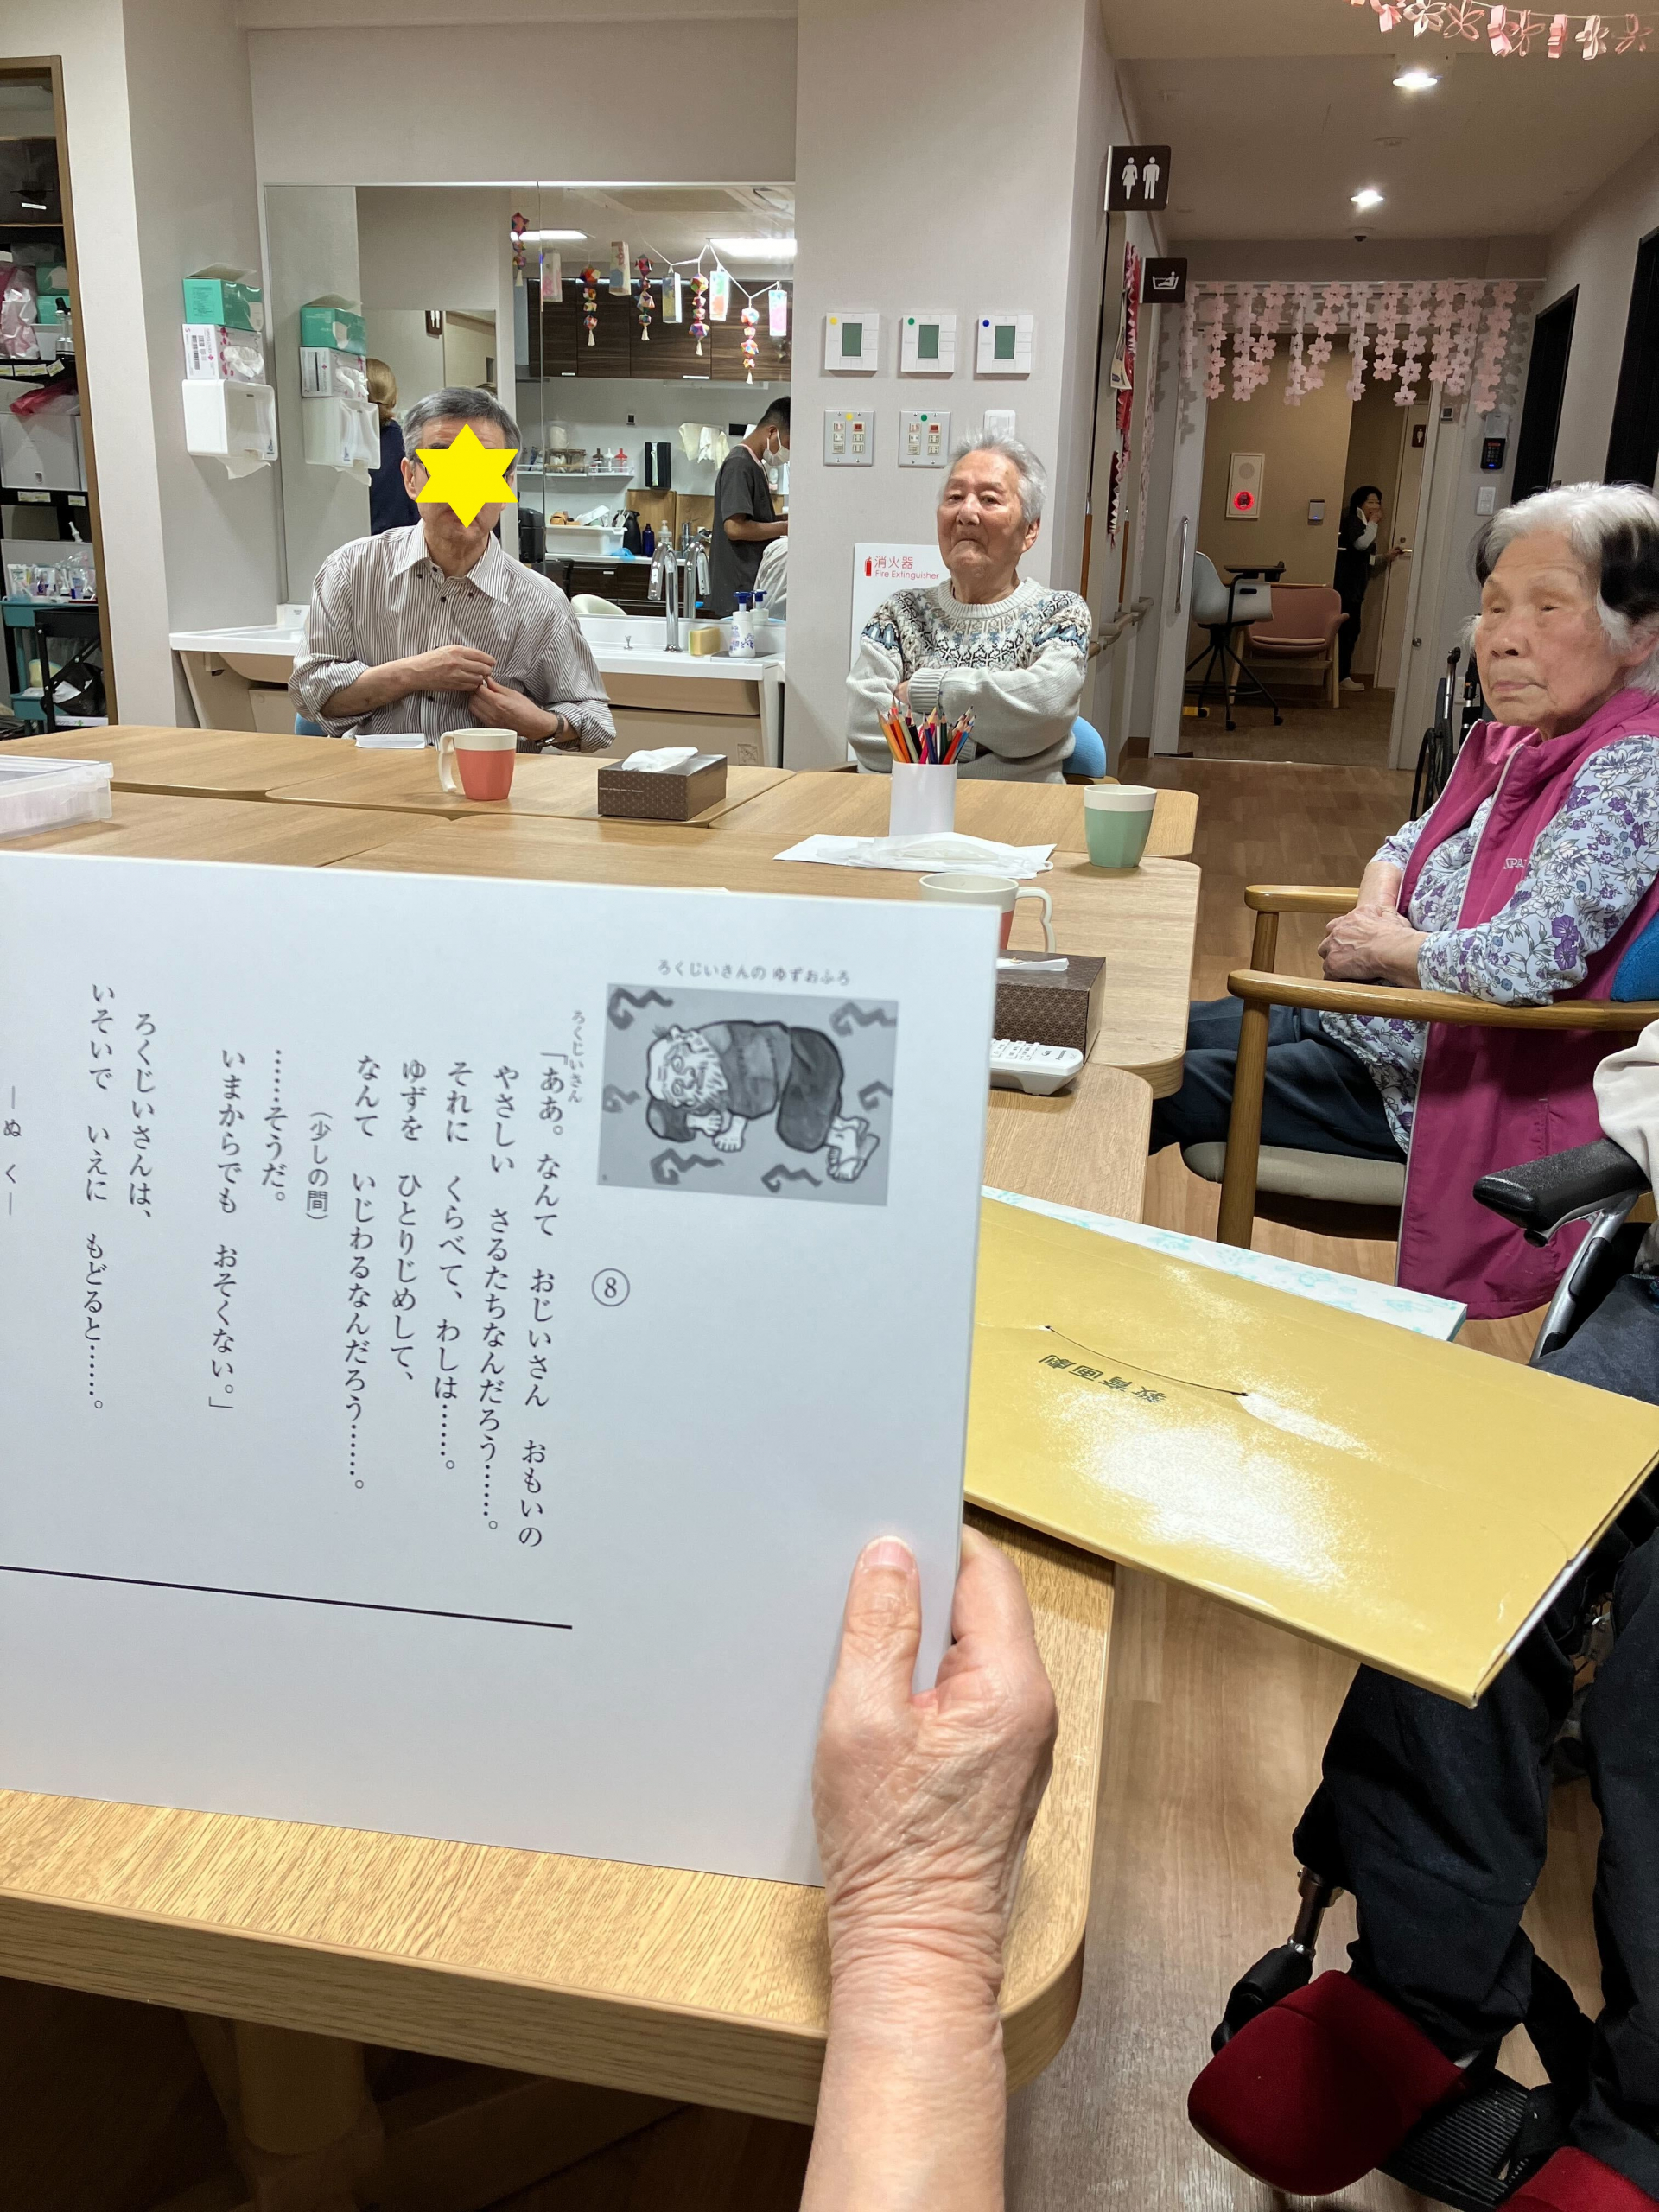 消火器
Fire Extinguisher
ろくじいさんの ゆずおふろ
⑧
ろくじいさん
「ああ。なんて おじいさん おもいの
やさしい さるたちなんだろう……。
それに くらべて、わしは……。
ゆずを ひとりじめして、
なんて いじわるなんだろう……。
(少しの間)
……そうだ。
いまからでも おそくない。」
ろくじいさんは、
いそいで いえに もどると……。
―ぬ く―
教育画劇